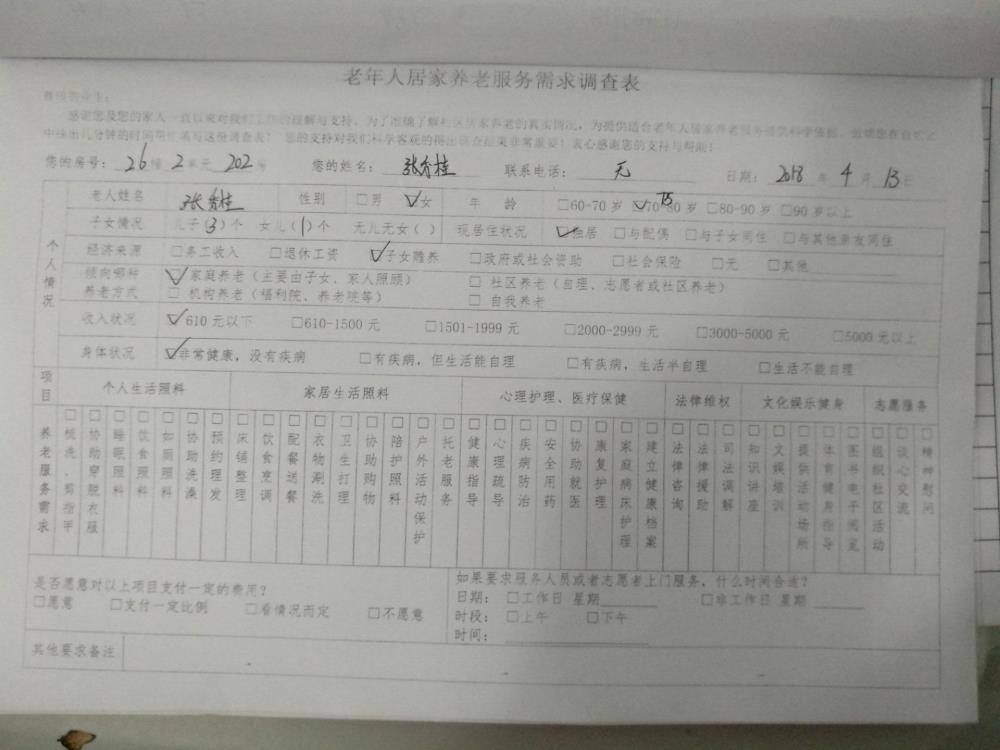 老年人居家养老服务需求调查表
感谢您及您的家人一直以来对我们工作的理解与支持。为了准确了解社区居家养老的真实情况，为提供适合老年人居家养老服务提供科学依据，
您的支持对我们科学客观的得出调查结果非常重要！衷心感谢您的支持与帮助！
您的房号：26 幢 2 单元 202 房 您的姓名： 联系电话：无 日期：2018 年 4 月 13 日
老人姓名 性别 □男 ☑女 年 龄 □60-70 岁 ☑70-80 岁 75 □80-90 岁 □90 岁以上
子女情况 儿子(3)个 女儿(1)个 无儿无女( ) 现居住状况 ☑独居 □与配偶 □与子女同住 □与其他亲友同住
个人情况
经济来源 □务工收入 □退休工资 ☑子女赡养 □政府或社会资助 □社会保险 □无 □其他
倾向哪种养老方式 ☑家庭养老（主要由子女、家人照顾） □ 社区养老（自理、志愿者或社区养老）
□ 机构养老（福利院、养老院等） □ 自我养老
收入状况 ☑610 元以下 □610-1500 元 □1501-1999 元 □2000-2999 元 □3000-5000 元 □5000 元以上
身体状况 ☑非常健康，没有疾病 □有疾病，但生活能自理 □有疾病，生活半自理 □生活不能自理
项目 个人生活照料 家居生活照料 心理护理、医疗保健 法律维权 文化娱乐健身 志愿服务
养老服务需求
□梳洗、剪指甲
□协助穿脱衣服
□睡眠照料
□饮食照料
□如厕照料
□协助洗澡
□预约理发
□床铺整理
□饮食烹调
□配餐送餐
□衣物涮洗
□卫生打理
□协助购物
□陪护照料
□户外活动保护
□托老服务
□健康指导
□心理疏导
□疾病防治
□安全用药
□协助就医
□康复护理
□家庭病床护理
□建立健康档案
□法律咨询
□法律援助
□司法调解
□知识讲座
□文娱培训
□提供活动场所
□体育健身指导
□图书电子阅览
□组织社区活动
□谈心交流
□精神慰问
是否愿意对以上项目支付一定的费用？
□愿意 □支付一定比例 □看情况而定 □不愿意
如果要求服务人员或者志愿者上门服务，什么时间合适？
日期： □工作日 星期 □非工作日 星期
时段： □上午 □下午
时间：
其他要求备注